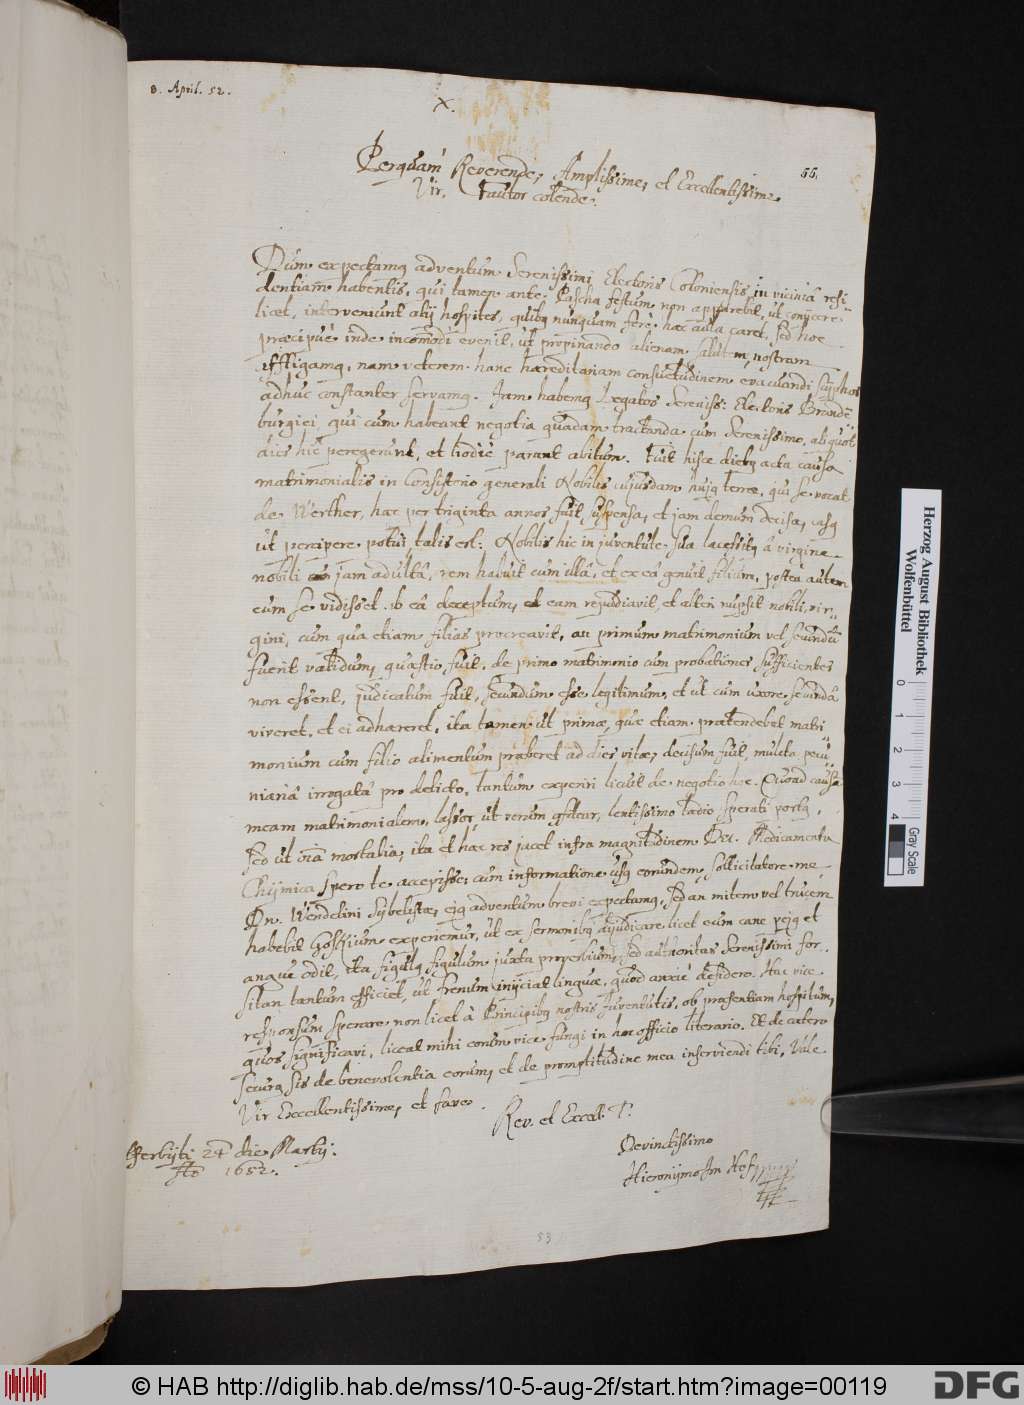 8. April. 52.
X.
55.
Perquam Reverende, Amplissime, et Excellentissime
Vir, Fautor colende.
Dum expectamq adventum Serenissimi Electoris Coloniensis in viciniâ resi-
dentiam habentis, qui tamen ante Pascha festum non apparebit, ut conijcere
licet, interveniunt alij hospites, quibq nunquam fere hæc aula caret, sed hoc
præcipuè inde incommodi evenit, ut propinando alienam salutem, nostram
affligamq, nam veterem hanc hæreditariam consuetudinem evacuandi scyphos
adhuc constanter servamq. Jam habemq Legatos Sereniss: Electoris Brande-
burgici, qui cum habeant negotia quædam tractanda cum Serenissimo, aliquot
dies hic peregerunt, et hodiè parant abitum. Fuit hisce diebq acta causa
matrimonialis in Consistorio generali Nobilis cujusdam hujq terræ, qui se vocat
de Werther, hac per triginta annos fuit suspensa, et jam demum decisa, casq
ut percipere potui talis est: Nobilis hic in juventute sua lacessitq â virgine
nobili jam adultâ, rem habuit cum illâ, et ex eâ genuit filium, posteà autem
cum se vidisset ab eâ deceptum, eam repudiavit, et alteri nupsit nobili vir-
gini, cum qua etiam filias procreavit, an primum matrimonium vel secundũ
fuerit validum, quæstio fuit, de primo matrimonio cum probationes sufficientes
non essent, judicatum fuit, secundum esse legitimum, et ut cum uxore secundâ
viveret, et ei adhæreret, ita tamen ut primæ, quæ etiam prætendebat matri-
monium cum filio alimentum præberet ad dies vitæ, decisum fuit, mulcta pecu-
niariâ irrogatâ pro delicto, tantum experiri licuit de negotio hoc. Quoad causã
meam matrimonialem, lassor, ut verum fatear, lentissimo tædio sperati portq,
sed ut omnia mortalia, ita et hæc res jacet infra magnitudinem Dei. Medicamenta
Chijmica spero te accepisse, cum informatione usq eorundem, sollicitatore me
Dn. Wendelini Sybelistæ, ejq adventum brevi expectamq, sed an mitem vel trucem
habebit Goskium experiemur, ut ex sermonibq dijudicare licet eum cane pejq et
angue odit, ita figulq figulum juxta proverbium, sed authoritas Serenissimi for-
sitan tantum efficiet, ut frenum injiciat linguæ, quod anxiè desidero. Hac vice
responsum sperare non licet à Principibq nostris Juventutis, ob præsentiam hospitum,
quos significavi, liceat mihi eorum vice fungi in hoc officio literario. Et de cætero
securq sis de benevolentia eorum, et de promptitudine mea inserviendi tibi, Vale
Vir Excellentissime, et fave.
Rev. et Excell. T.
Devinctissimo
Hieronijmo
24 die Martij:
Ao 1652.
53
Herzog August Bibliothek
Wolfenbüttel
0 1 2 3 4
Gray Scale
© HAB http://diglib.hab.de/mss/10-5-aug-2f/start.htm?image=00119
DFG